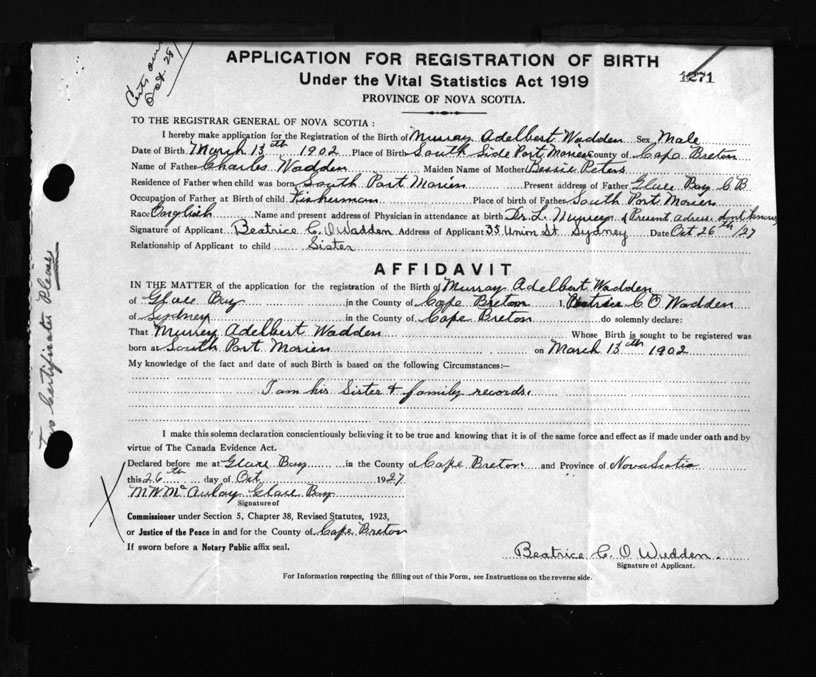 Oct. 28
APPLICATION FOR REGISTRATION OF BIRTH
Under the Vital Statistics Act 1919
1271
PROVINCE OF NOVA SCOTIA.
TO THE REGISTRAR GENERAL OF NOVA SCOTIA:
I hereby make application for the Registration of the Birth of Murray Adelbert Wadden Sex Male
Date of Birth March 13th 1902 Place of Birth South Side Port Morien County of Cape Breton
Name of Father Charles Wadden Maiden Name of Mother Bessie Peters
Residence of Father when child was born South Port Morien Present address of Father Glace Bay C B
Occupation of Father at Birth of child Fisherman Place of birth of Father South Port Morien
Race English Name and present address of Physician in attendance at birth Dr. L. Present dont know
Signature of Applicant Beatrice C. O Wadden Address of Applicant 35 Union St. Sydney Date Oct 26th/27
Relationship of Applicant to child Sister
AFFIDAVIT
IN THE MATTER of the application for the registration of the Birth of Murray Adelbert Wadden
of Glace Bay in the County of Cape Breton I, Beatrice C O. Wadden
of Sydney in the County of Cape Breton do solemnly declare:
That Murray Adelbert Wadden Whose Birth is sought to be registered was
born at South Port Morien on March 13th 1902
My knowledge of the fact and date of such Birth is based on the following Circumstances:—
I am his Sister & family records.
I make this solemn declaration conscientiously believing it to be true and knowing that it is of the same force and effect as if made under oath and by
virtue of The Canada Evidence Act.
Declared before me at Glace Bay in the County of Cape Breton and Province of Nova Scotia
this 26th day of Oct 1927
M W McAulay Glace Bay
Signature of
Commissioner under Section 5, Chapter 38, Revised Statutes, 1923,
or Justice of the Peace in and for the County of Cape Breton
If sworn before a Notary Public affix seal.
Beatrice C. O Wadden.
Signature of Applicant.
For Information respecting the filling out of this Form, see Instructions on the reverse side.
Two Certificates Please